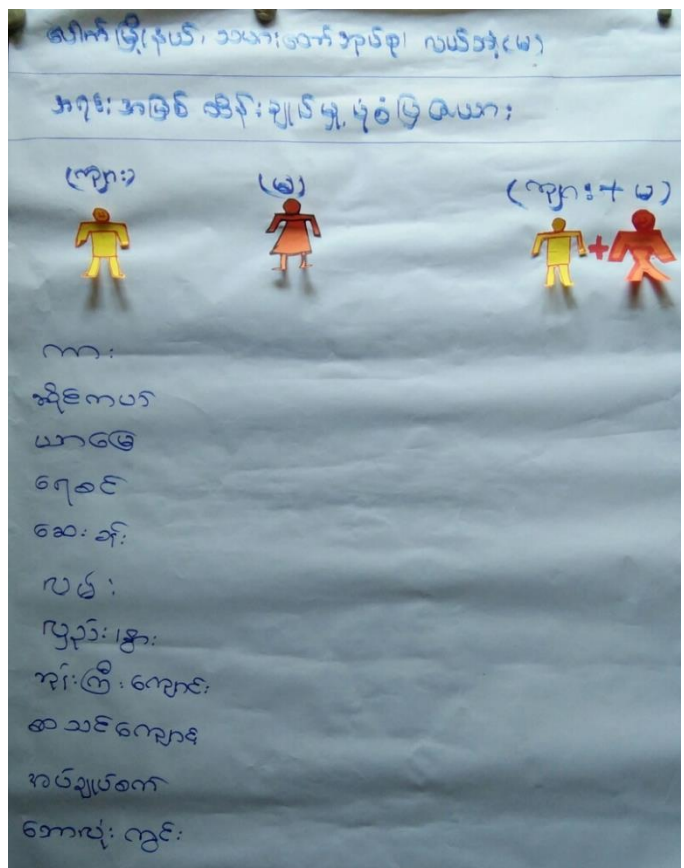 ပေါက်မြို့နယ်၊ သမားတော်အုပ်စု၊ လယ်
အရင်းအမြစ် ထိန်းချုပ်မှု ပုံစံပြ ဇယား
(ကျား)
(မ)
(ကျား + မ)
ကား
ဆိုင်ကယ်
ယာမြေ
ရေစင်
ဆေးခန်း
လမ်း
လှည်း၊ နွား
ဘုန်းကြီးကျောင်း
စာသင်ကျောင်း
အပ်ချုပ်စက်
ဘောလုံးကွင်း